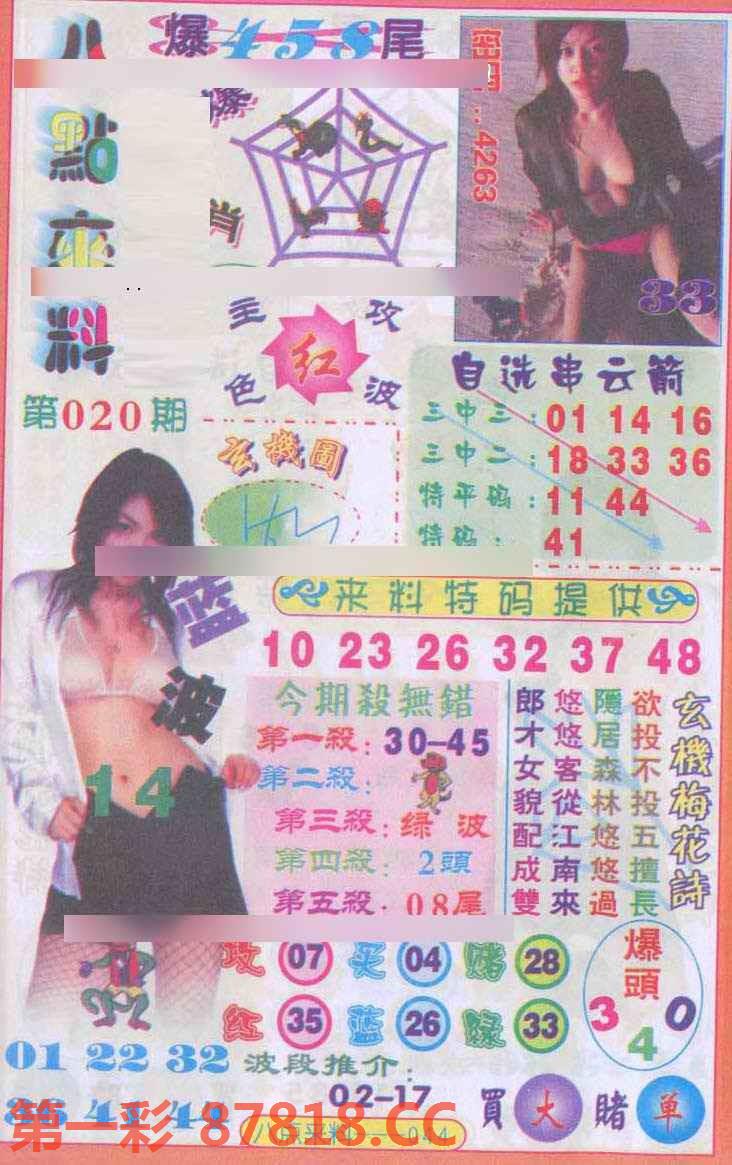 爆458尾
八點來料
爆
肖
4263
33
主攻
红
色波
第020期
自选串云箭
三中三:01 14 16
三中二:18 33 36
特平码:11 44
特码:41
玄機圖
来料特码提供
10 23 26 32 37 48
蓝波
14
今期殺無錯
第一殺:30-45
第二殺:
第三殺:绿波
第四殺:2頭
第五殺:08尾
玄機梅花詩
欲投不投五擅長
隱居森林悠悠過
悠悠客從江南來
郎才女貌配成雙
攻 07 买 04 赌 28
红 35 蓝 26 绿 33
爆頭
3 4 0
01 22 32
波段推介:
02-17
買大赌单
第一彩 87818.CC
八點来料——044